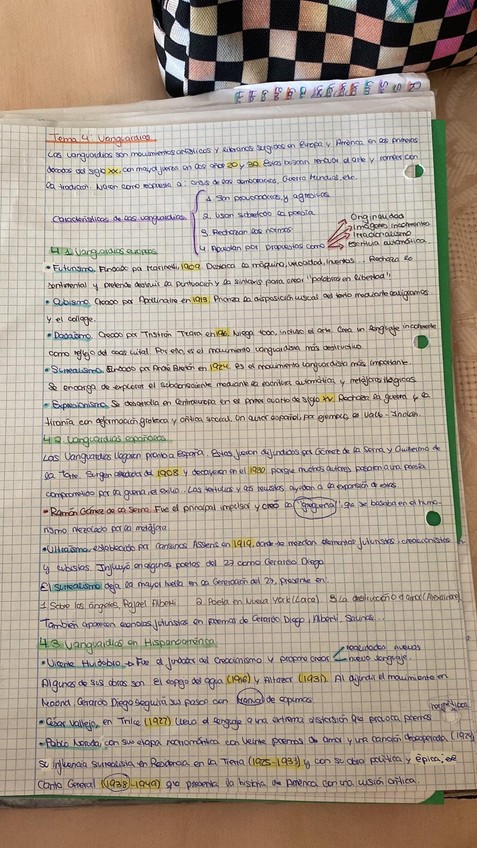 Tema 4 Vanguardias
Las Vanguardias son movimientos artísticos y literarios surgidos en Europa y América en las primeras
décadas del siglo XX, con mayor fuerza en los años 20 y 30. Estas buscan renovar el arte y romper con
la tradición. Nacen como respuesta a: crisis de las democracias, Guerra Mundial, etc.
Características de las vanguardias
1. Son provocadoras y agresivas
2. Usan sobretodo la poesía
3. Rechazan las normas
4. Apuestan por propuestas como
Originalidad
Imágenes incoherentes
Irracionalismo
Escritura automática.
4.1 Vanguardias europeas
• Futurismo. Fundado por Marinetti, 1909. Destaca la máquina, velocidad, inventos. Rechaza lo
sentimental y pretende destruir la puntuación y la sintaxis para crear "palabras en libertad"
• Cubismo. Creado por Apollinaire en 1913. Prioriza la disposición visual del texto mediante caligramas
y el collage.
• Dadaísmo. Creado por Tristán Tzara en 1916. Niega todo, incluso el arte. Crea un lenguaje incoherente
como reflejo del caos vital. Por ello, es el movimiento vanguardista más destructivo.
• Surrealismo. Fundado por André Bretón en 1924. es el movimiento vanguardista más importante.
Se encarga de explorar el subconsciente mediante la escritura automática, y metáforas ilógicas.
• Expresionismo. Se desarrolla en Centroeuropa en el primer cuarto de siglo XX. Rechaza la guerra y la
tiranía con deformación grotesca y crítica social. Un autor español, por ejemplo, es Valle-Inclán.
4.2 Vanguardias españolas
Las Vanguardias llegaron pronto a España. Estas fueron difundidas por Gómez de la Serna y Guillermo de
la Torre. Surgen alrededor del 1908 y decayeron en el 1930 porque muchos autores pasaron a una poesía
comprometida por la guerra y el exilio. Las tertulias y las revistas ayudan a la expansión de estas
• Ramón Gómez de la Serna. Fue el principal impulsor y creó la "greguería", que se basaba en el humo-
rismo mezclado por la metáfora
• Ultraísmo, establecido por Cansinos Assens en 1919, donde se mezclan elementos futuristas, creacionistas
y cubistas. Influyó en algunos poetas del 27 como Gerardo Diego
El surrealismo deja la mayor huella en la Generación del 27, presente en:
1 Sobre los ángeles, Rafael Alberti 2. Poeta en Nueva York (Lorca) 3 La destrucción o amor (Aleixandre)
También aparecen elementos futuristas en poemas de Gerardo Diego, Alberti, Salinas...
4.3 Vanguardias en Hispanoamérica
• Vicente Huidobro, Fue el fundador del Creacionismo y propone crear
realidades nuevas
nuevo lenguaje.
Algunas de sus obras son El espejo del agua (1916) y Altazor (1931). Al difundir el movimiento en
Madrid, Gerardo Diego seguirá su paso con Manual de espumas
• César Vallejo, en Trilce (1922) lleva el lenguaje a una extrema distorsión que provoca poemas
• Pablo Neruda, con su etapa neorromántica con Veinte poemas de amor y una canción desesperada (1924)
su influencia surrealista en Residencia en la Tierra (1925-1931) y con su obra política y épica, de
Canto General (1938-1949) que presenta la historia de América con una visión crítica.